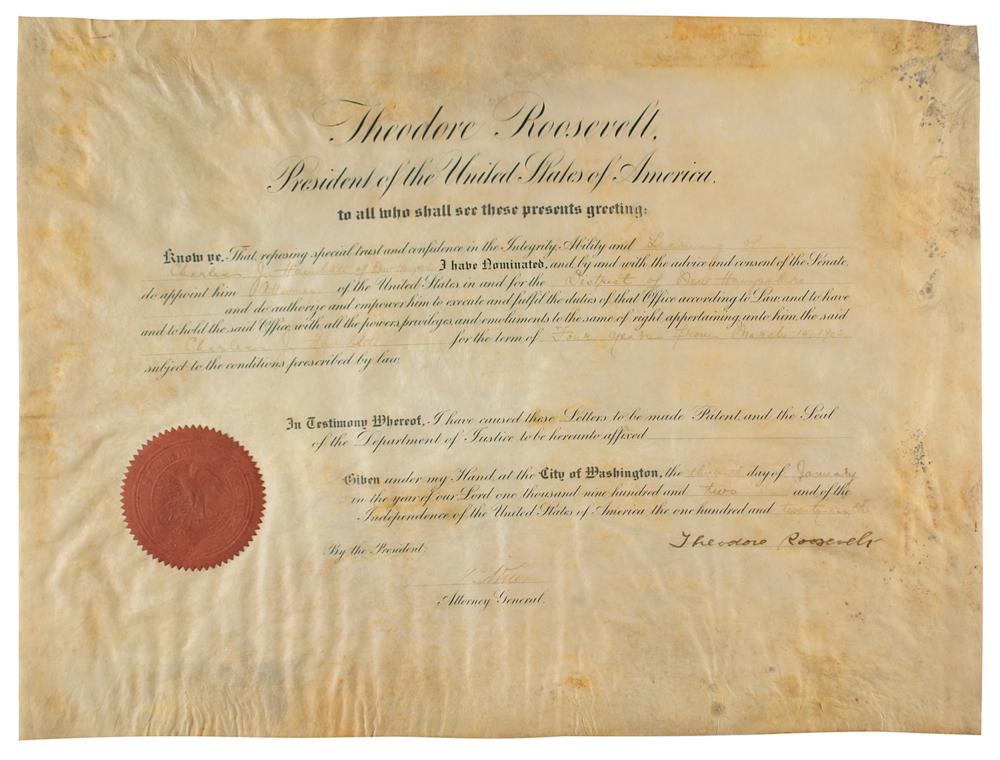 Theodore Roosevelt,
President of the United States of America,
to all who shall see these presents greeting:
Know ye, That, reposing special trust and confidence in the Integrity, Ability and Learning of
Charles J. of New Hampshire I have Nominated, and, by and with the advice and consent of the Senate,
do appoint him of the United States, in and for the District of New Hampshire
and do authorize and empower him to execute and fulfil the duties of that Office according to Law; and to have
and to hold the said Office, with all the powers, privileges, and emoluments to the same of right appertaining unto him, the said
Charles J. for the term of Four years from March 1902
subject to the conditions prescribed by law.
In Testimony Whereof, I have caused these Letters to be made Patent, and the Seal
of the Department of Justice to be hereunto affixed
Given under my Hand, at the City of Washington, the day of January
in the year of our Lord one thousand nine hundred and two and of the
Independence of the United States of America the one hundred and twenty-sixth
Theodore Roosevelt
By the President:
Attorney General.